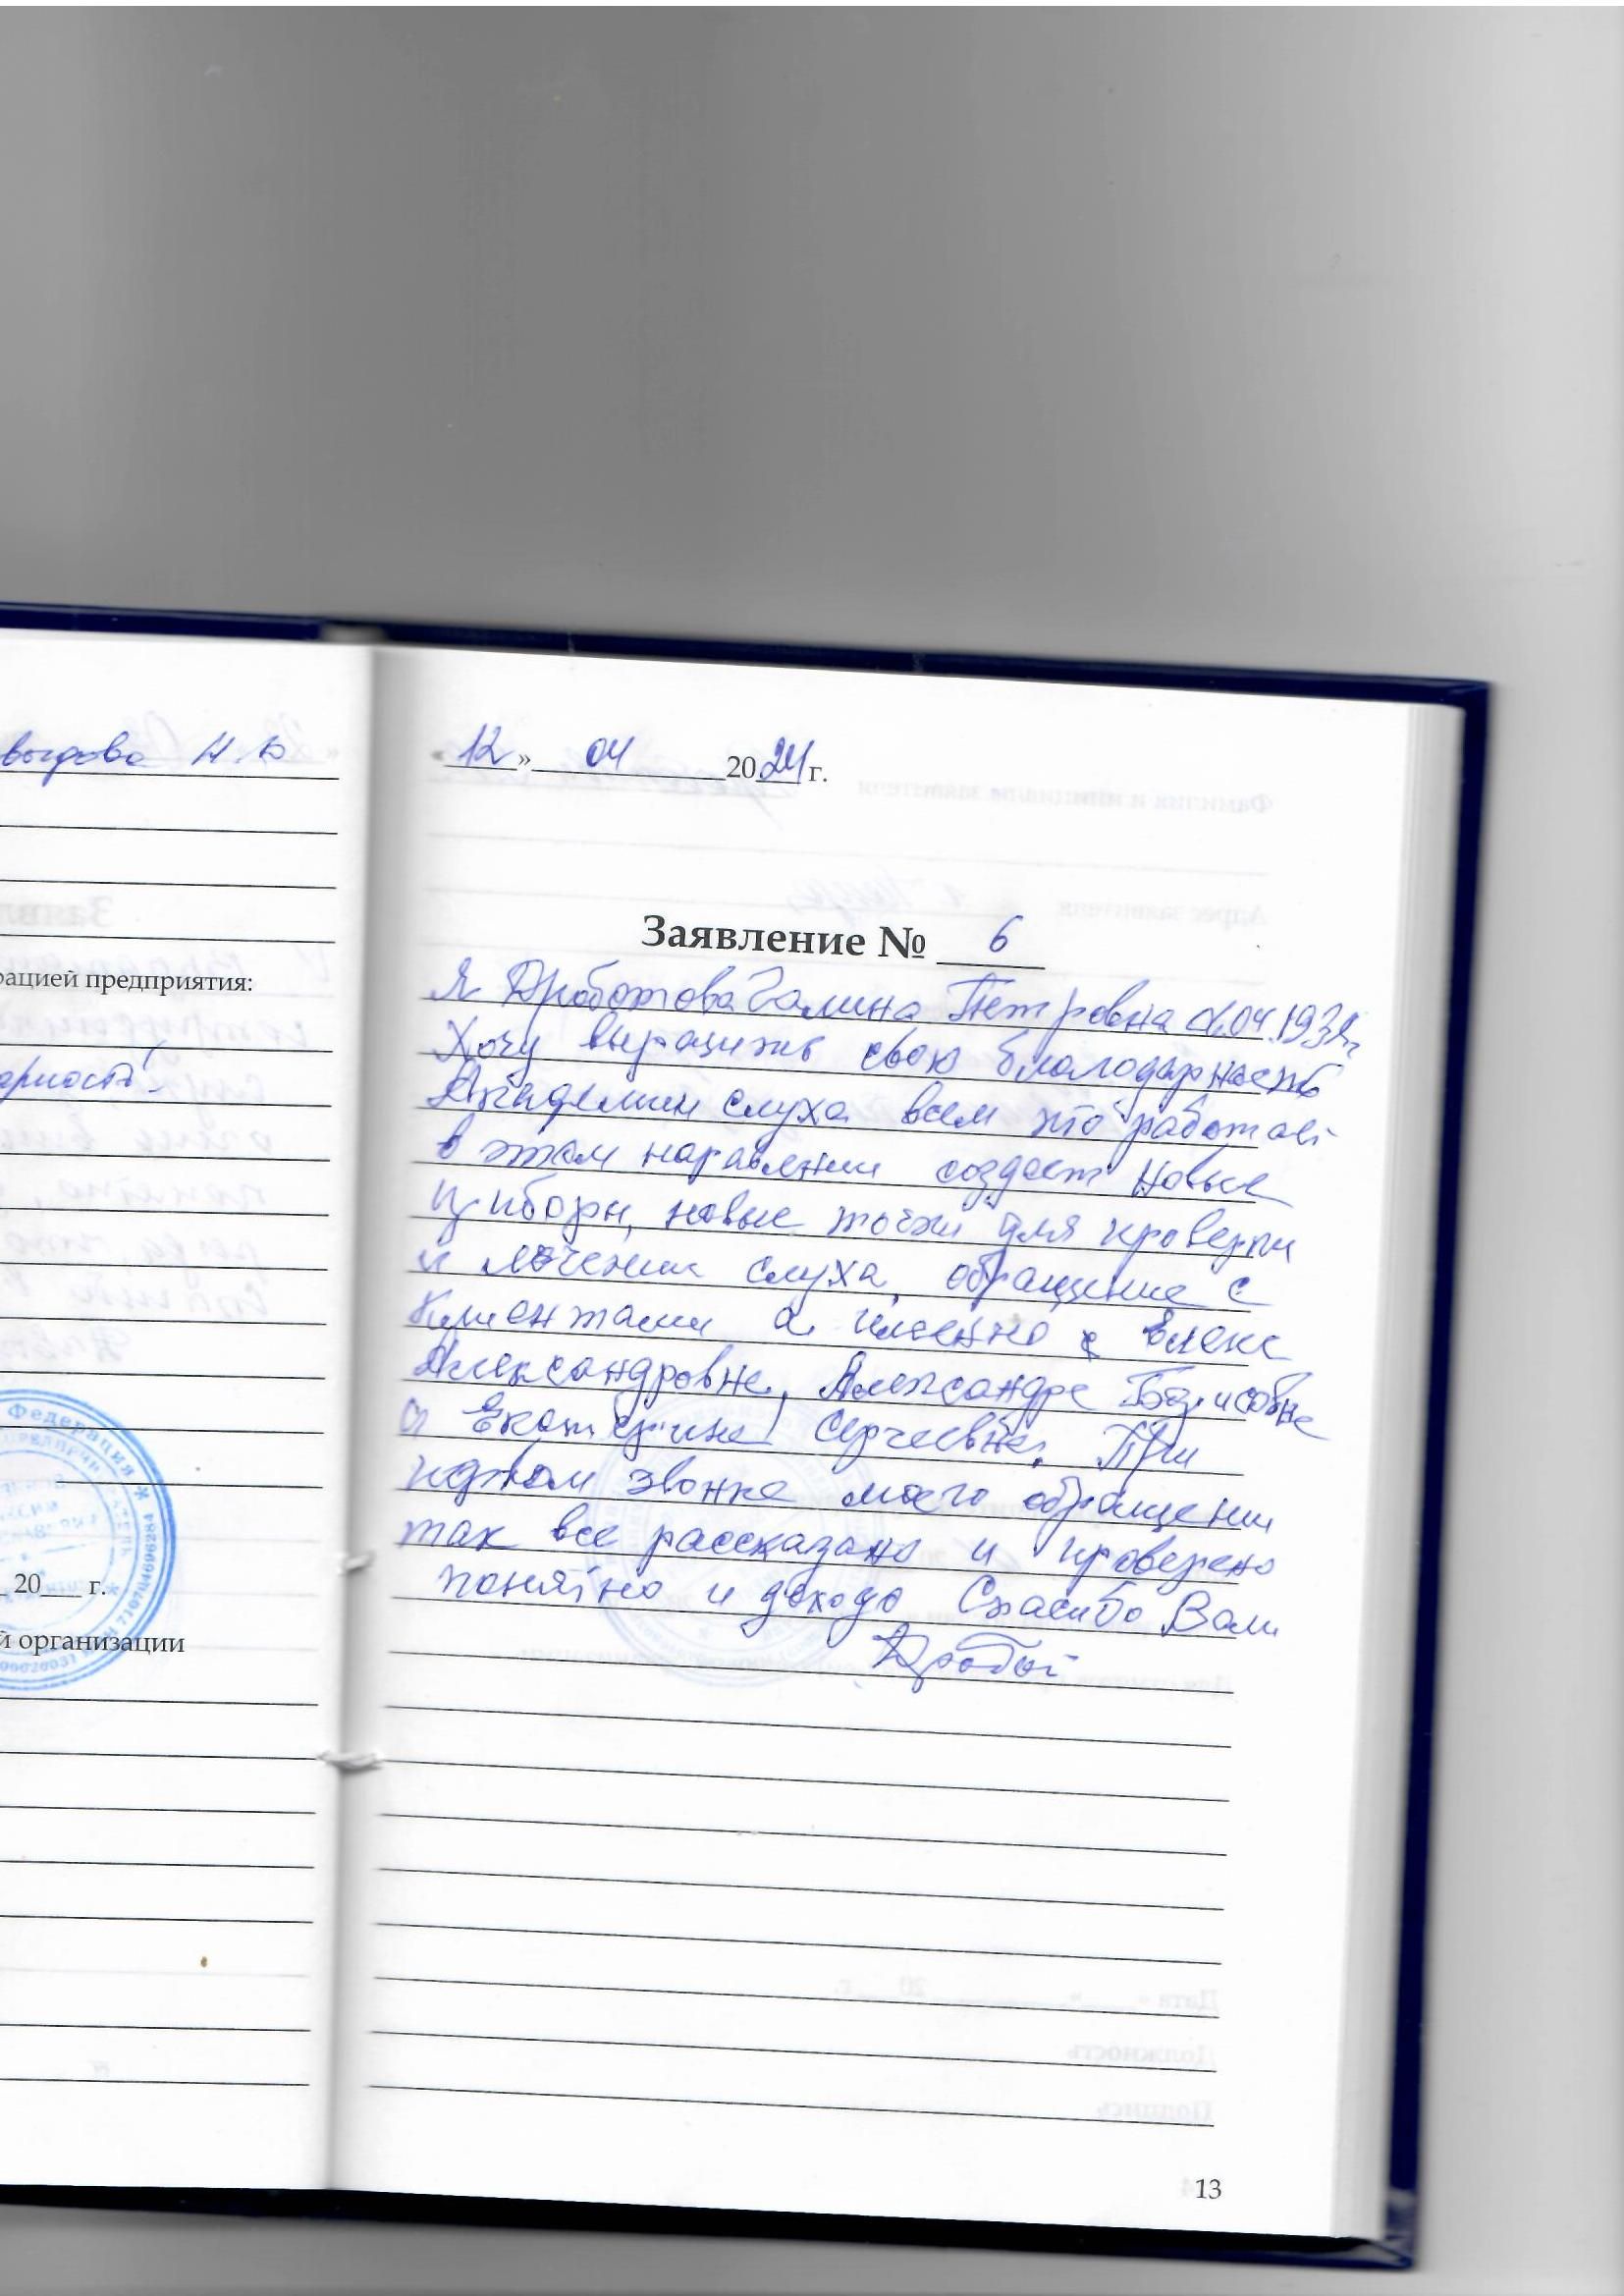 Н. Ю
рацией предприятия:
арность!
Федерация
20___ г.
й организации
« 12 » 04 2024 г.
Заявление № 6
Я Дроботова Галина Петровна 04.193
Хочу выразить свою благодарность
Академии слуха всем кто работает
в этом направлении создает новые
приборы, новые для проверки
и лечения слуха, обращение с
клиентами а именно с Елене
Александровне, Александре Борисовне
и Екатерине Сергеевне. При
звонке моего обращении
так все рассказано и проверено
понятно и Спасибо Вам
13